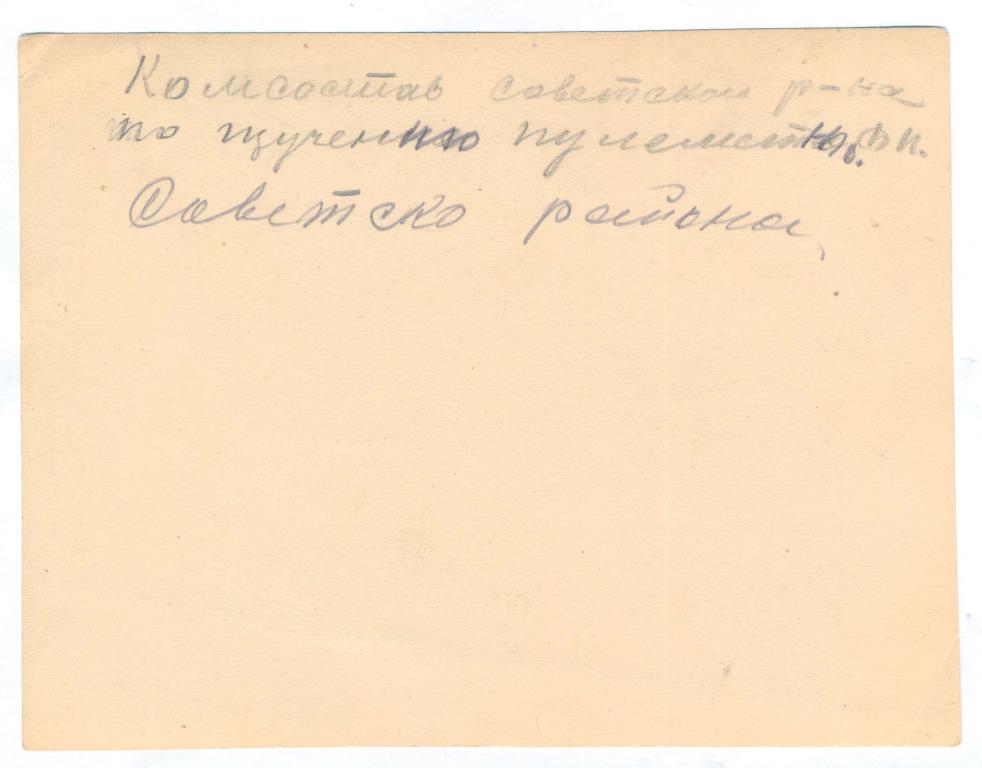 Комсостав советского р-на
по изучению пулемет
Советско района